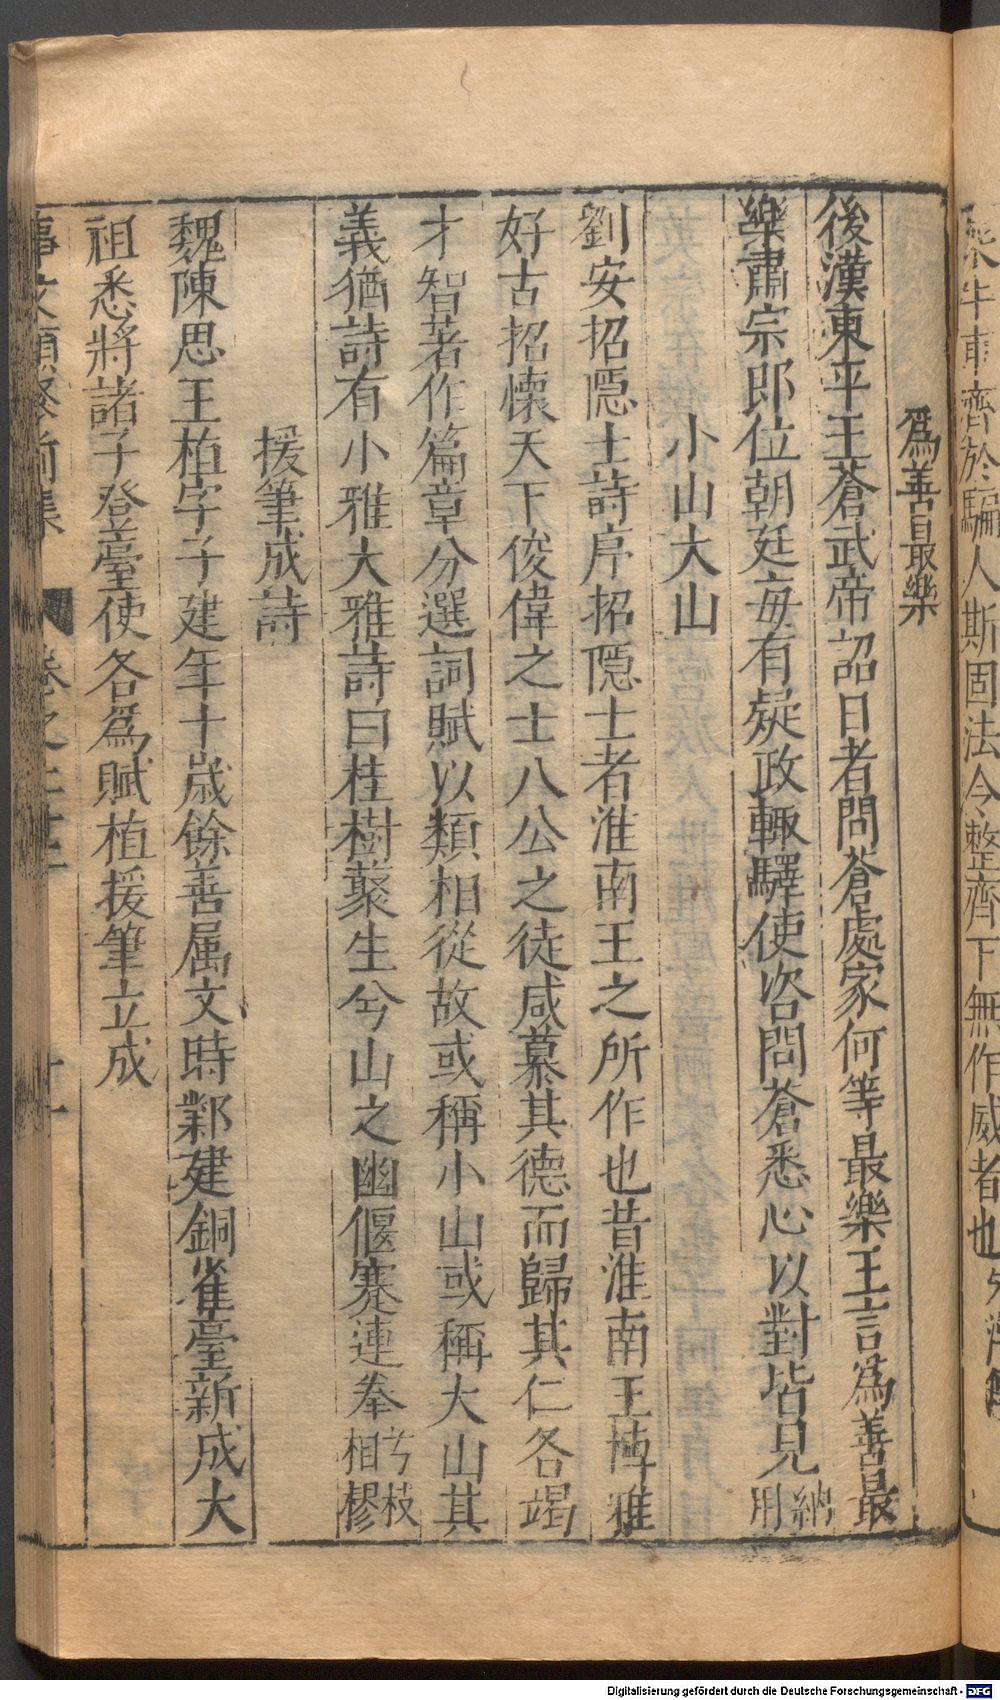 也
爲善最樂
後漢東平王蒼武帝詔曰者問蒼處家何等最樂王言爲善最
樂肅宗即位朝廷每有疑政輙驛使咨問蒼悉心以對皆見納用
小山大山
劉安招隱士詩序招隱士者淮南王之所作也昔淮南王博雅
好古招懷天下俊偉之士八公之徒咸慕其德而歸其仁各竭
才智著作篇章分選詞賦以類相從故或稱小山或稱大山其
義猶詩有小雅大雅詩曰桂樹藂生兮山之幽偃蹇連拳兮枝相樛
援筆成詩
魏陳思王植字子建年十歲餘善属文時鄴建銅雀臺新成大
祖悉將諸子登臺使各爲賦植援筆立成
十一
牛車齊於騙人斯固法令整齊下無作威者也
Digitalisierung gefördert durch die Deutsche Forschungsgemeinschaft - DFG